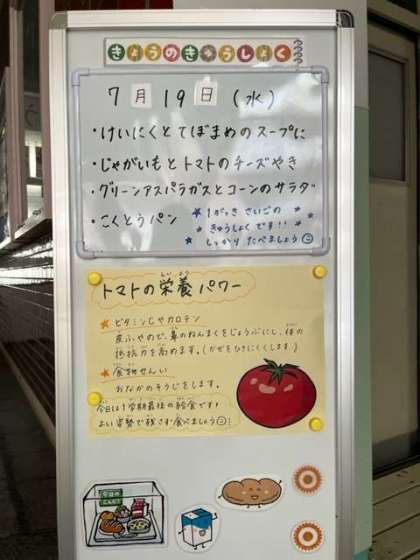 きょうのきゅうしょく
7月19日(水)
・けいにくとてぼまめのスープに
・じゃがいもとトマトのチーズやき
・グリーンアスパラガスとコーンのサラダ
・こくとうパン
★1がっき さいごの
★きゅうしょくです!!★
★しっかり たべましょう
トマトの栄養パワー
えい よう
★ビタミンCやカロテン
皮ふやのど、鼻のねんまくをじょうぶにし、体の
抵抗力を高めます。(かぜをひきにくくします。)
★食物せんい
おなかのそうじをします。
今日は1学期最後の給食です。
よい姿勢で残さず食べましょう
今日の
こんだて